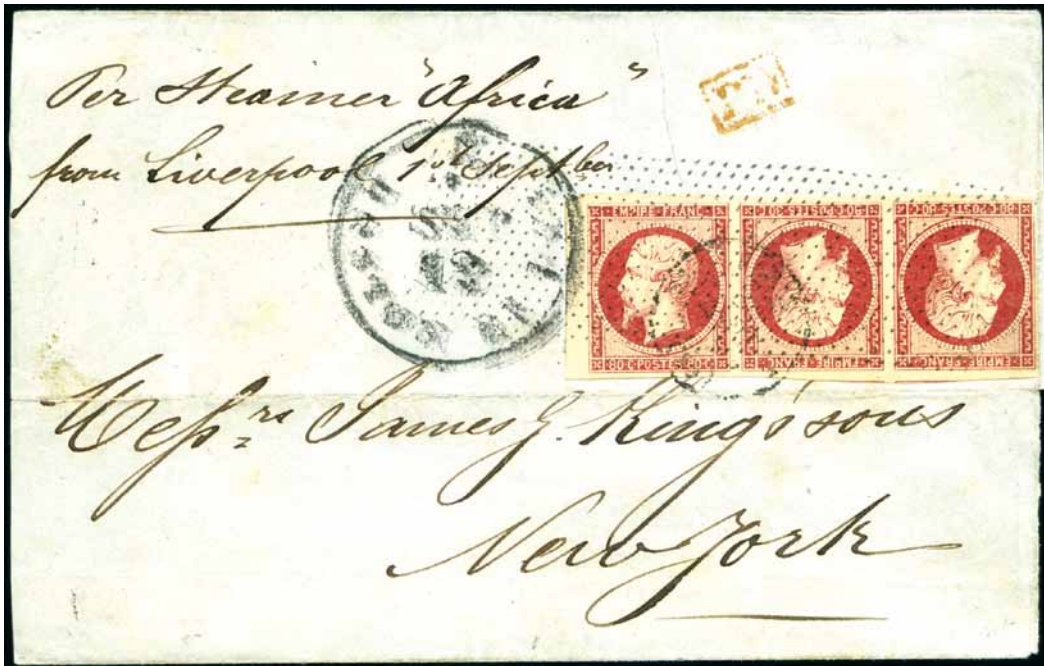 Per Steamer "Africa"
from Liverpool 1st Septber
EMPIRE FRANC
80·C·POSTES·80·C
80·C·POSTES·80·C
EMPIRE·FRANC
80·C·POSTES·80·C
EMPIRE·FRANC
Messrs James G. King's sons
New York